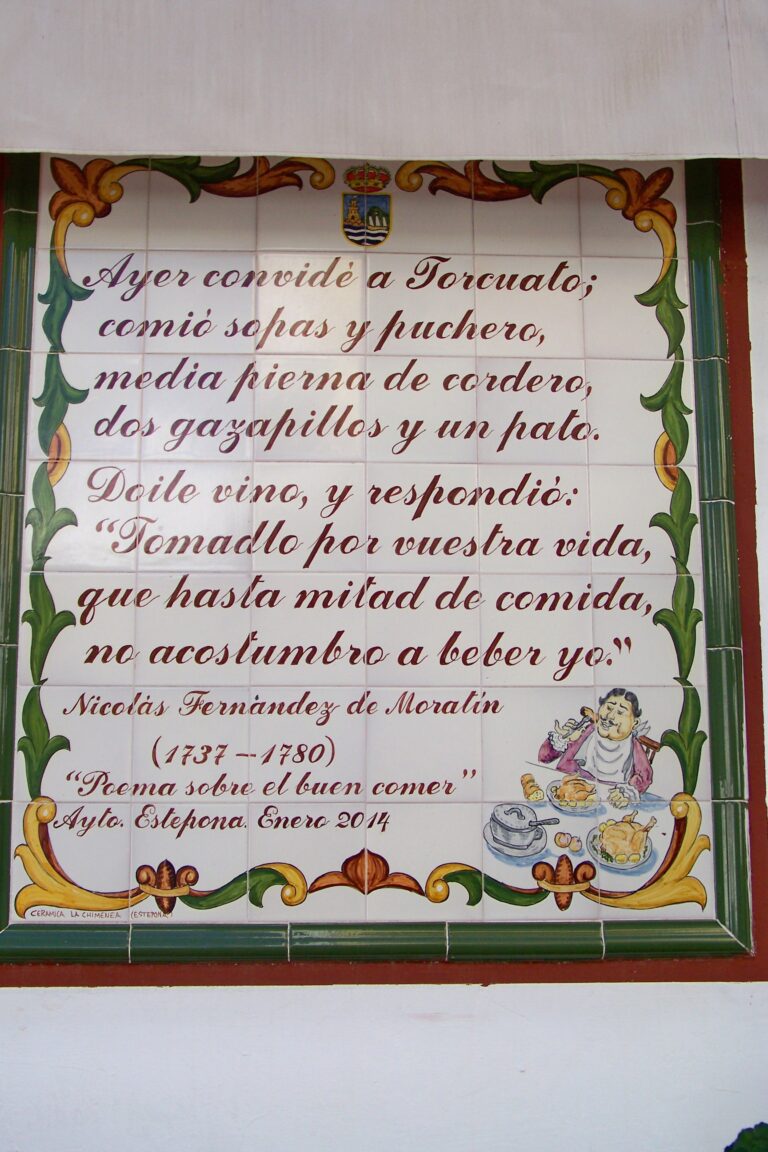 Ayer convidé a Torcuato;
comió sopas y puchero,
media pierna de cordero,
dos gazapillos y un pato.
Doile vino, y respondió:
“Tomadlo por vuestra vida,
que hasta mitad de comida,
no acostumbro a beber yo.”
Nicolás Fernàndez de Moratín
(1737 – 1780)
“Poema sobre el buen comer”
Ayto. Estepona. Enero 2014
CERAMICA LA CHIMENEA (ESTEPONA)